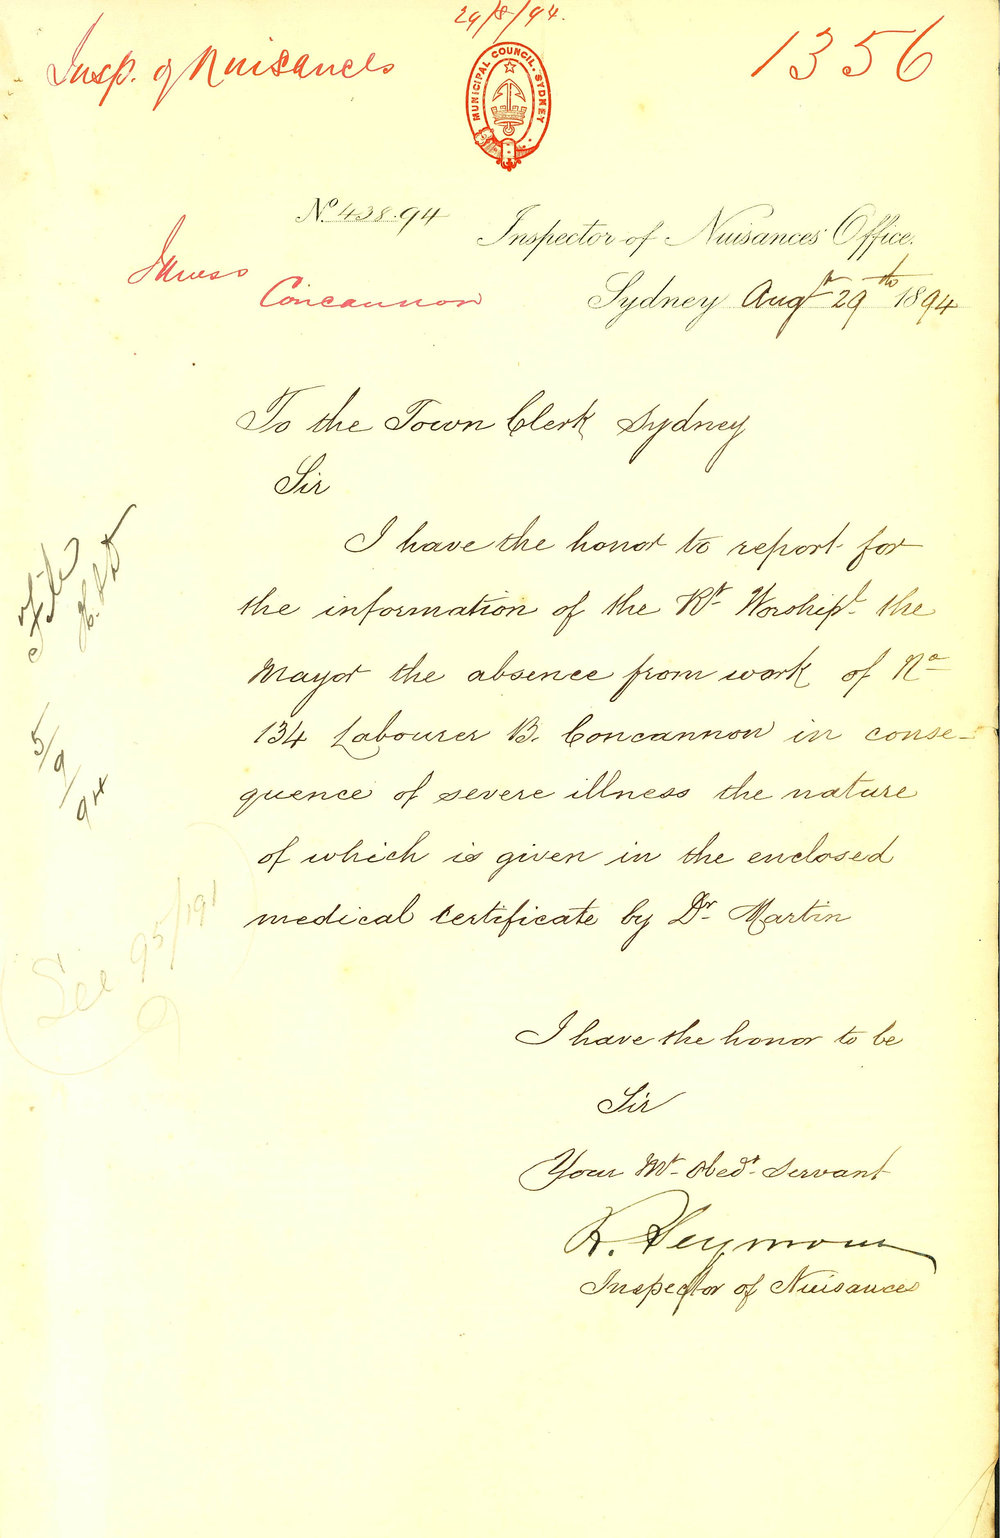 29/8/94.
Insp. of Nuisances
1356
MUNICIPAL COUNCIL. SYDNEY
No. 438.94
Inspector of Nuisances' Office.
Concannon
Sydney Augt 29th 1894
To the Town Clerk Sydney
Sir
I have the honor to report for
the information of the Rt Worshipl the
Mayor the absence from work of No
134 Labourer B. Concannon in conse-
quence of severe illness the nature
of which is given in the enclosed
medical certificate by Dr Martin
File
5/9/94
See 95/191
I have the honor to be
Sir
Your Mt Obedt Servant
R. Seymour
Inspector of Nuisances